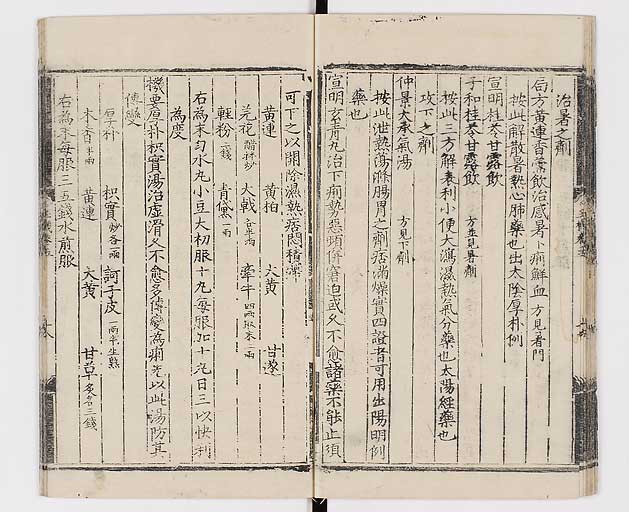 治暑之劑
局方黃連香薷飲治感暑下痢鮮血 方見暑門
按此解散暑熱心肺藥也出太陰厚朴例
宣明桂苓甘露飲
子和桂苓甘露飲 方並見暑劑
按此三方解表利小便大瀉濕熱氣分藥也太陽經藥也
攻下之劑
仲景大承氣湯 方見下劑
按此泄熱蕩滌腸胃之劑痞滿燥實四證者可用出陽明例
藥也
宣明玄青丸治下痢勢惡頻併窘迫或久不愈諸藥不能止須
可下之以開除濕熱痞悶積滯
黃連 黃栢 大黃 甘遂
芫花醋拌炒 大戟各半兩 牽牛四兩取末二兩
輕粉二錢 青黛一兩
右為末勻水丸小豆大初服十丸每服加十丸日三以快利
為度
機要厚朴枳實湯治虛滑久不愈多傳變為痢先以此湯防其
傳變
厚朴 枳實炒各一兩 訶子皮一兩半生半熟
木香半兩 黃連 大黃 甘草炙各三錢
右為末每服三五錢水煎服